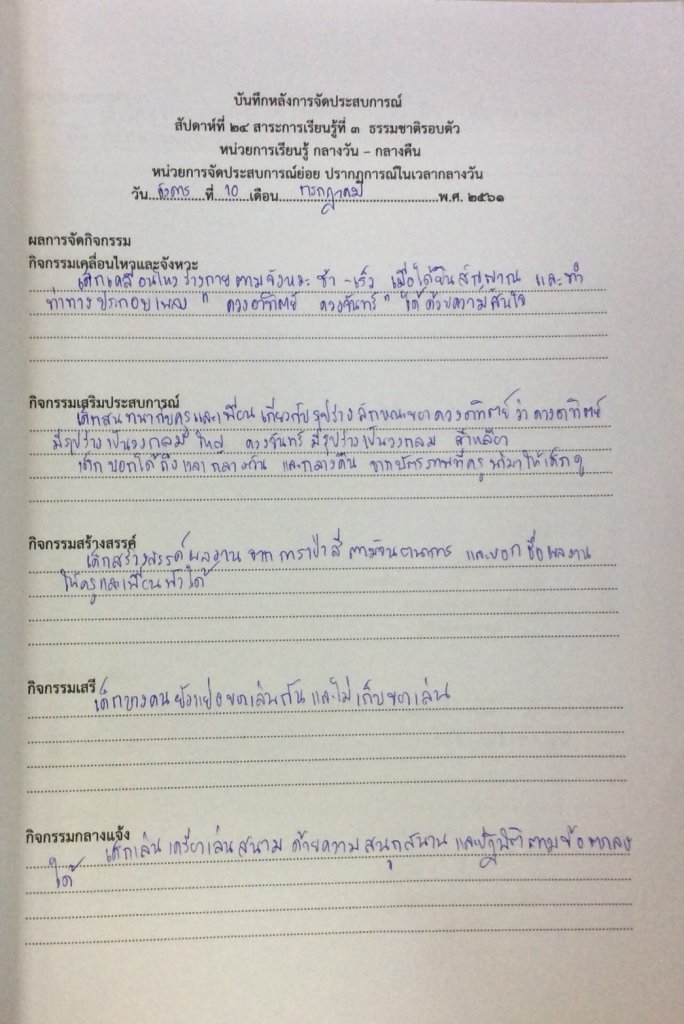 บันทึกหลังการจัดประสบการณ์
สัปดาห์ที่ ๒๔ สาระการเรียนรู้ที่ ๓ ธรรมชาติรอบตัว
หน่วยการเรียนรู้ กลางวัน – กลางคืน
หน่วยการจัดประสบการณ์ย่อย ปรากฏการณ์ในเวลากลางวัน
วัน อังคาร ที่ 10 เดือน กรกฎาคม พ.ศ. ๒๕๖๑
ผลการจัดกิจกรรม
กิจกรรมเคลื่อนไหวและจังหวะ
เด็กเคลื่อนไหวร่างกายตามจังหวะ ช้า - เร็ว เมื่อได้ยินสัญญาณ และทำ
ท่าทางประกอบเพลง " ดวงอาทิตย์ ดวงจันทร์ " ได้ด้วยความสนใจ
กิจกรรมเสริมประสบการณ์
เด็กสนทนากับครูและเพื่อนเกี่ยวกับรูปร่างลักษณะของดวงอาทิตย์ว่า ดวงอาทิตย์
มีรูปร่างเป็นวงกลม ใหญ่ ดวงจันทร์มีรูปร่างเป็นวงกลม สีเหลือง
เด็กบอกได้ถึงเวลากลางวัน และกลางคืน จากบัตรภาพที่ครูนำมาให้เด็กดู
กิจกรรมสร้างสรรค์
เด็กสร้างสรรค์ผลงานจากการเป่าสีตามจินตนาการ และบอกชื่อผลงาน
ให้ครูและเพื่อนฟังได้
กิจกรรมเสรี
เด็กบางคนยังแย่งของเล่นกัน และไม่เก็บของเล่น
กิจกรรมกลางแจ้ง
เด็กเล่นเครื่องเล่นสนาม ด้วยความสนุกสนาน และปฏิบัติตามข้อตกลง
ได้